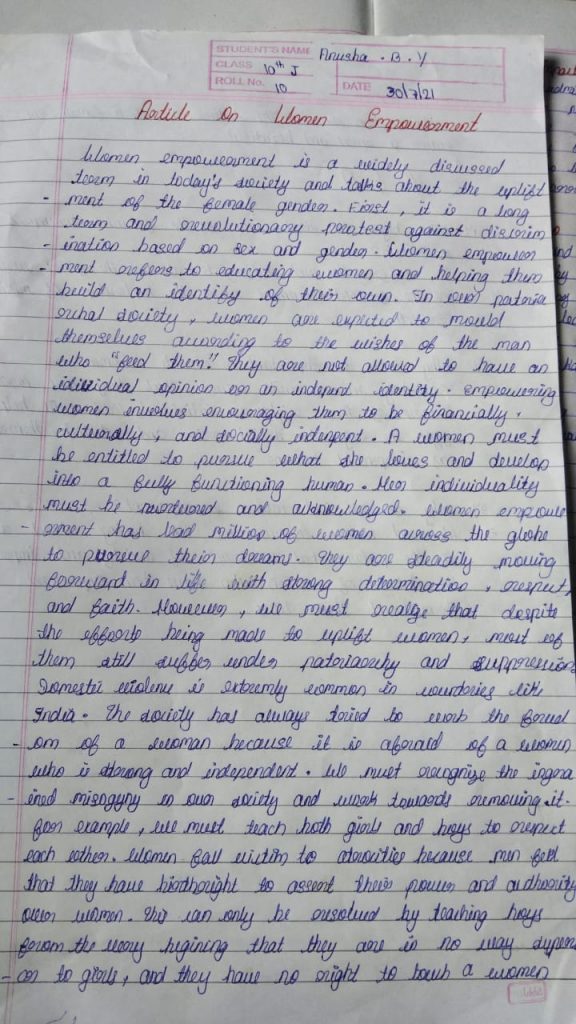 STUDENT'S NAME Anusha . B . Y
CLASS 10th J
ROLL No. 10 DATE 30/7/21
Article On Women Empowerment
Women empowerment is a widely discussed
term in today's society and talks about the uplift
- ment of the female gender. First, it is a long
term and revolutionary protest against discrim
- ination based on sex and gender. Women empower
- ment refers to educating women and helping them
build an identity of their own. In our patria
rchal society, women are expected to mould
themselves according to the wishes of the man
who "feed them". They are not allowed to have an
idividual opinion or an independ identity. Empowering
women involves encouraging them to be financially,
culturally, and socially indenpent. A women must
be entitled to pursue what she loves and develop
into a fully functioning human. Her individuality
must be nurtured and acknowledged. Women empowe
- rment has lead million of women across the globe
to pursue their dreams. They are steadily moving
forward in life with strong determination, respect,
and faith. However, we must realize that despite
the efforts being made to uplift women, most of
them still suffer under patriarchy and suppression
Domestic violence is extremely common in countries like
India. The society has always tried to curb the freed
- om of a woman because it is afraid of a women
who is strong and independent. We must recognize the ingra
- ined misogyny in our society and work towards removing it.
For example, we must teach both girls and boys to respect
each other. Women fall victim to atrocities because men feel
that they have birthright to assert their power and authority
over women. This can only be resolved by teaching boys
from the very begining that they are in no way superi
- or to girls, and they have no right to touch a women